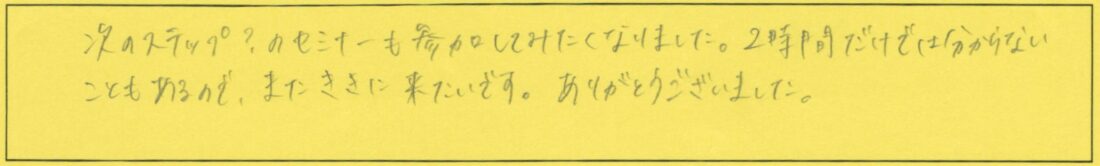 次のステップ？のセミナーも参加してみたくなりました。2時間だけでは分からない
こともあるので、またききに来たいです。ありがとうございました。